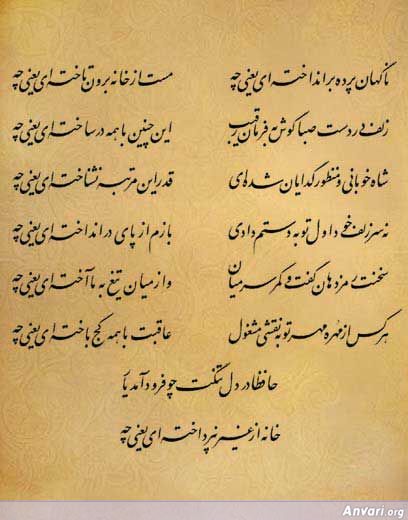 ناگهان پرده برانداخته‌ای یعنی چه مست از خانه برون تاخته‌ای یعنی چه
زلف در دست صبا گوش به فرمان رقیب این چنین با همه درساخته‌ای یعنی چه
شاه خوبانی و منظور گدایان شده‌ای قدر این مرتبه نشناخته‌ای یعنی چه
نه سر زلف خود اول تو به دستم دادی بازم از پای درانداخته‌ای یعنی چه
سخنت رمز دهان گفت و کمر سر میان وز میان تیغ به ما آخته‌ای یعنی چه
هر کس از مهره مهر تو به نقشی مشغول عاقبت با همه کج باخته‌ای یعنی چه
حافظا در دل تنگت چو فرود آمد یار
خانه از غیر نپرداخته‌ای یعنی چه
Anvari.org